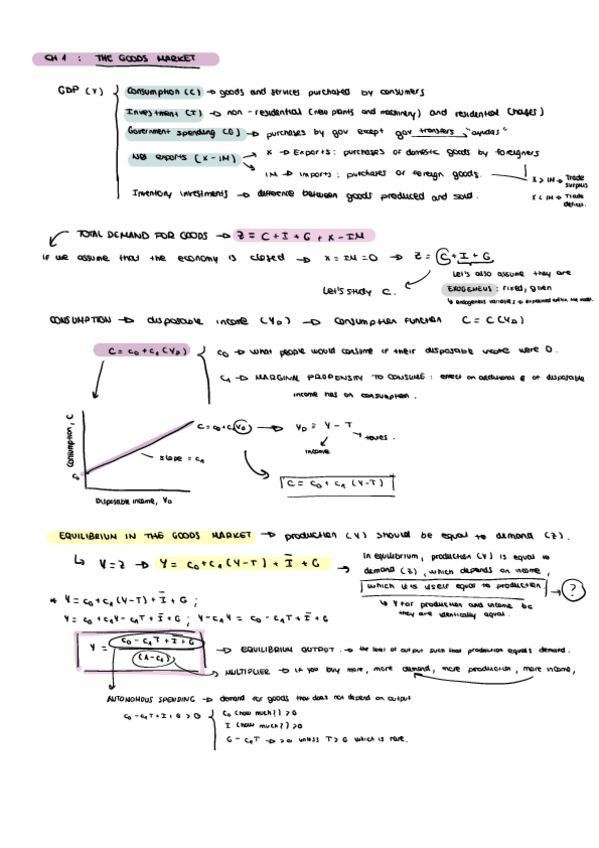 CH 1 : THE GOODS MARKET
GDP (Y)
Consumption (C) → goods and services purchased by consumers
Investment (I) → non-residential (new plants and machinery) and residential (houses)
Government spending (G) → purchases by gov except gov transfers "ayudas"
Net exports (X-IM)
X → Exports: purchases of domestic goods by foreigners
IM → imports: purchases of foreign goods.
X > IM → Trade surplus
X < IM → Trade deficit.
Inventory investments → difference between goods produced and sold.
TOTAL DEMAND FOR GOODS → Z = C + I + G + X - IM
If we assume that the economy is closed → X = IM = 0 → Z = C + I + G
Let's also assume they are
EXOGENEUS : fixed, given
↳ endogenous variables → explained within the model.
Let's study C.
CONSUMPTION → disposable income (YD) → Consumption function C = C(YD)
C = c0 + c1 (YD)
c0 → what people would consume if their disposable income were 0.
c1 → MARGINAL PROPENSITY TO CONSUME : effect an additional € of disposable
income has on consumption.
Consumption, C
c0
slope = c1
Disposable income, YD
C = c0 + c1 (YD) → YD = Y - T
income
taxes.
C = c0 + c1 (Y-T)
EQUILIBRIUM IN THE GOODS MARKET → production (Y) should be equal to demand (Z).
↳ Y = Z → Y = c0 + c1 (Y-T) + Ī + G →
In equilibrium, production (Y) is equal to
demand (Z), which depends on income,
which it is itself equal to production → ?
↳ Y for production and income bc
they are identically equal.
Y = c0 + c1 (Y-T) + Ī + G ;
Y = c0 + c1Y - c1T + Ī + G ; Y - c1Y = c0 - c1T + Ī + G
Y = c0 - c1T + Ī + G
(1-c1)
→ EQUILIBRIUM OUTPUT. → the level of output such that production equals demand.
→ MULTIPLIER → if you buy more, more demand, more production, more income,
AUTONOMOUS SPENDING → demand for goods that does not depend on output
c0 - c1T + I + G > 0
c0 (how much?) > 0
I (how much?) > 0
G - c1T → > 0 unless T > G which is rare.